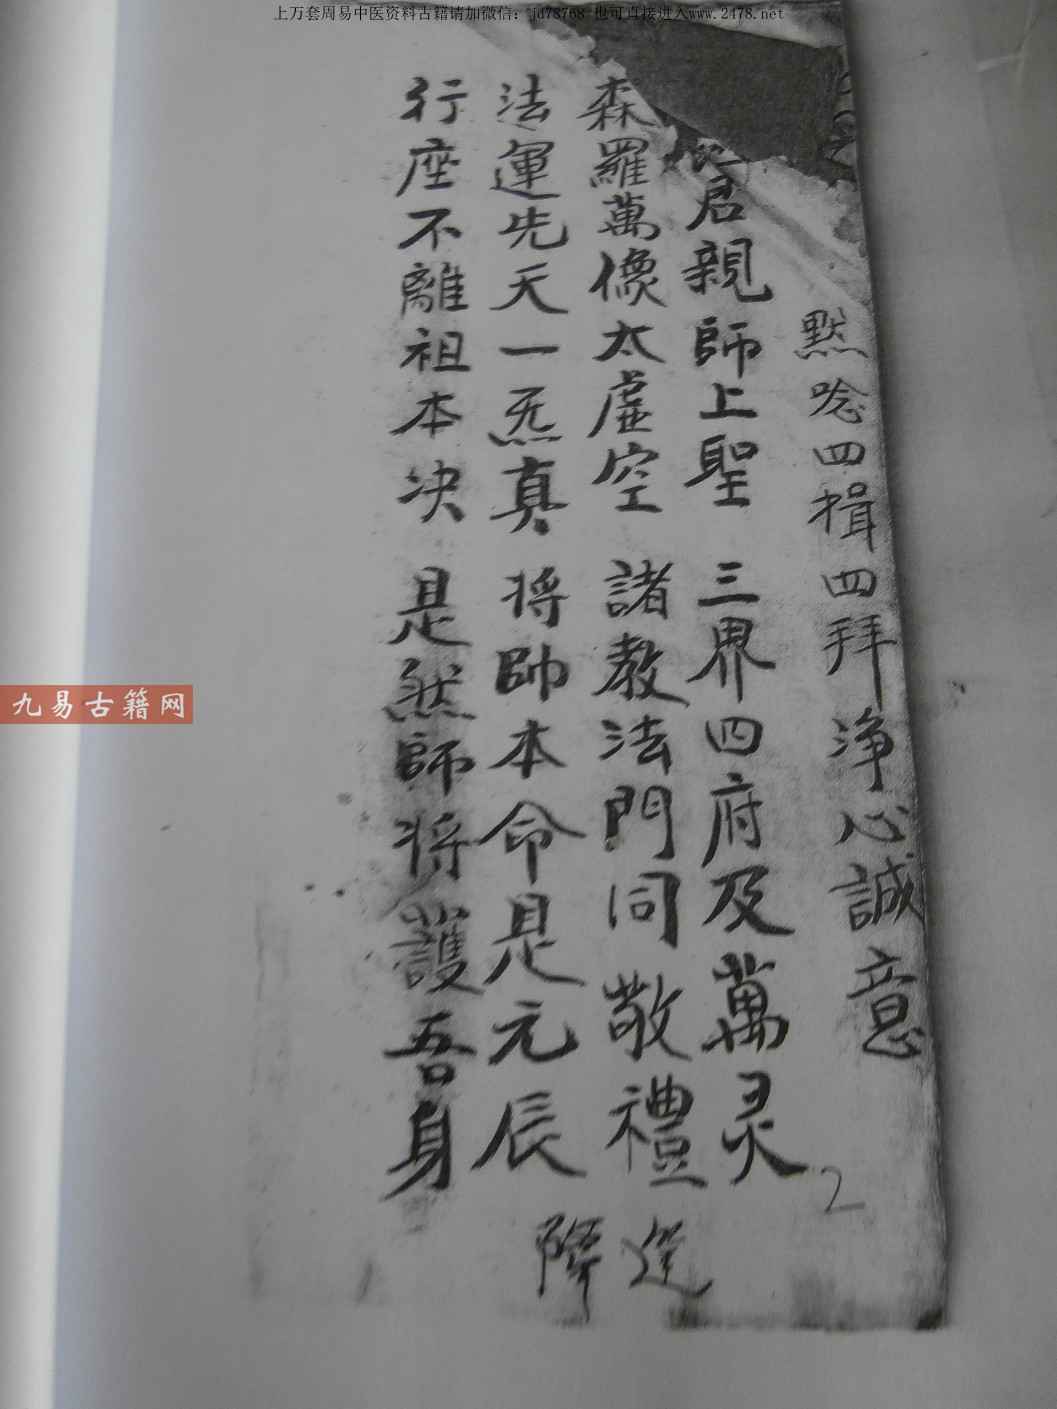 上万套周易中医资料古籍请加微信：jd78768 也可直接进入www.2478.net
黙唸四揖四拜淨心誠意
君親師上聖 三界四府及萬灵
森羅萬像太虛空 諸教法門同敬禮
法運先天一炁真 将帥本命是元辰
行座不離祖本决 是然師将護吾身
降
2
九易古籍网